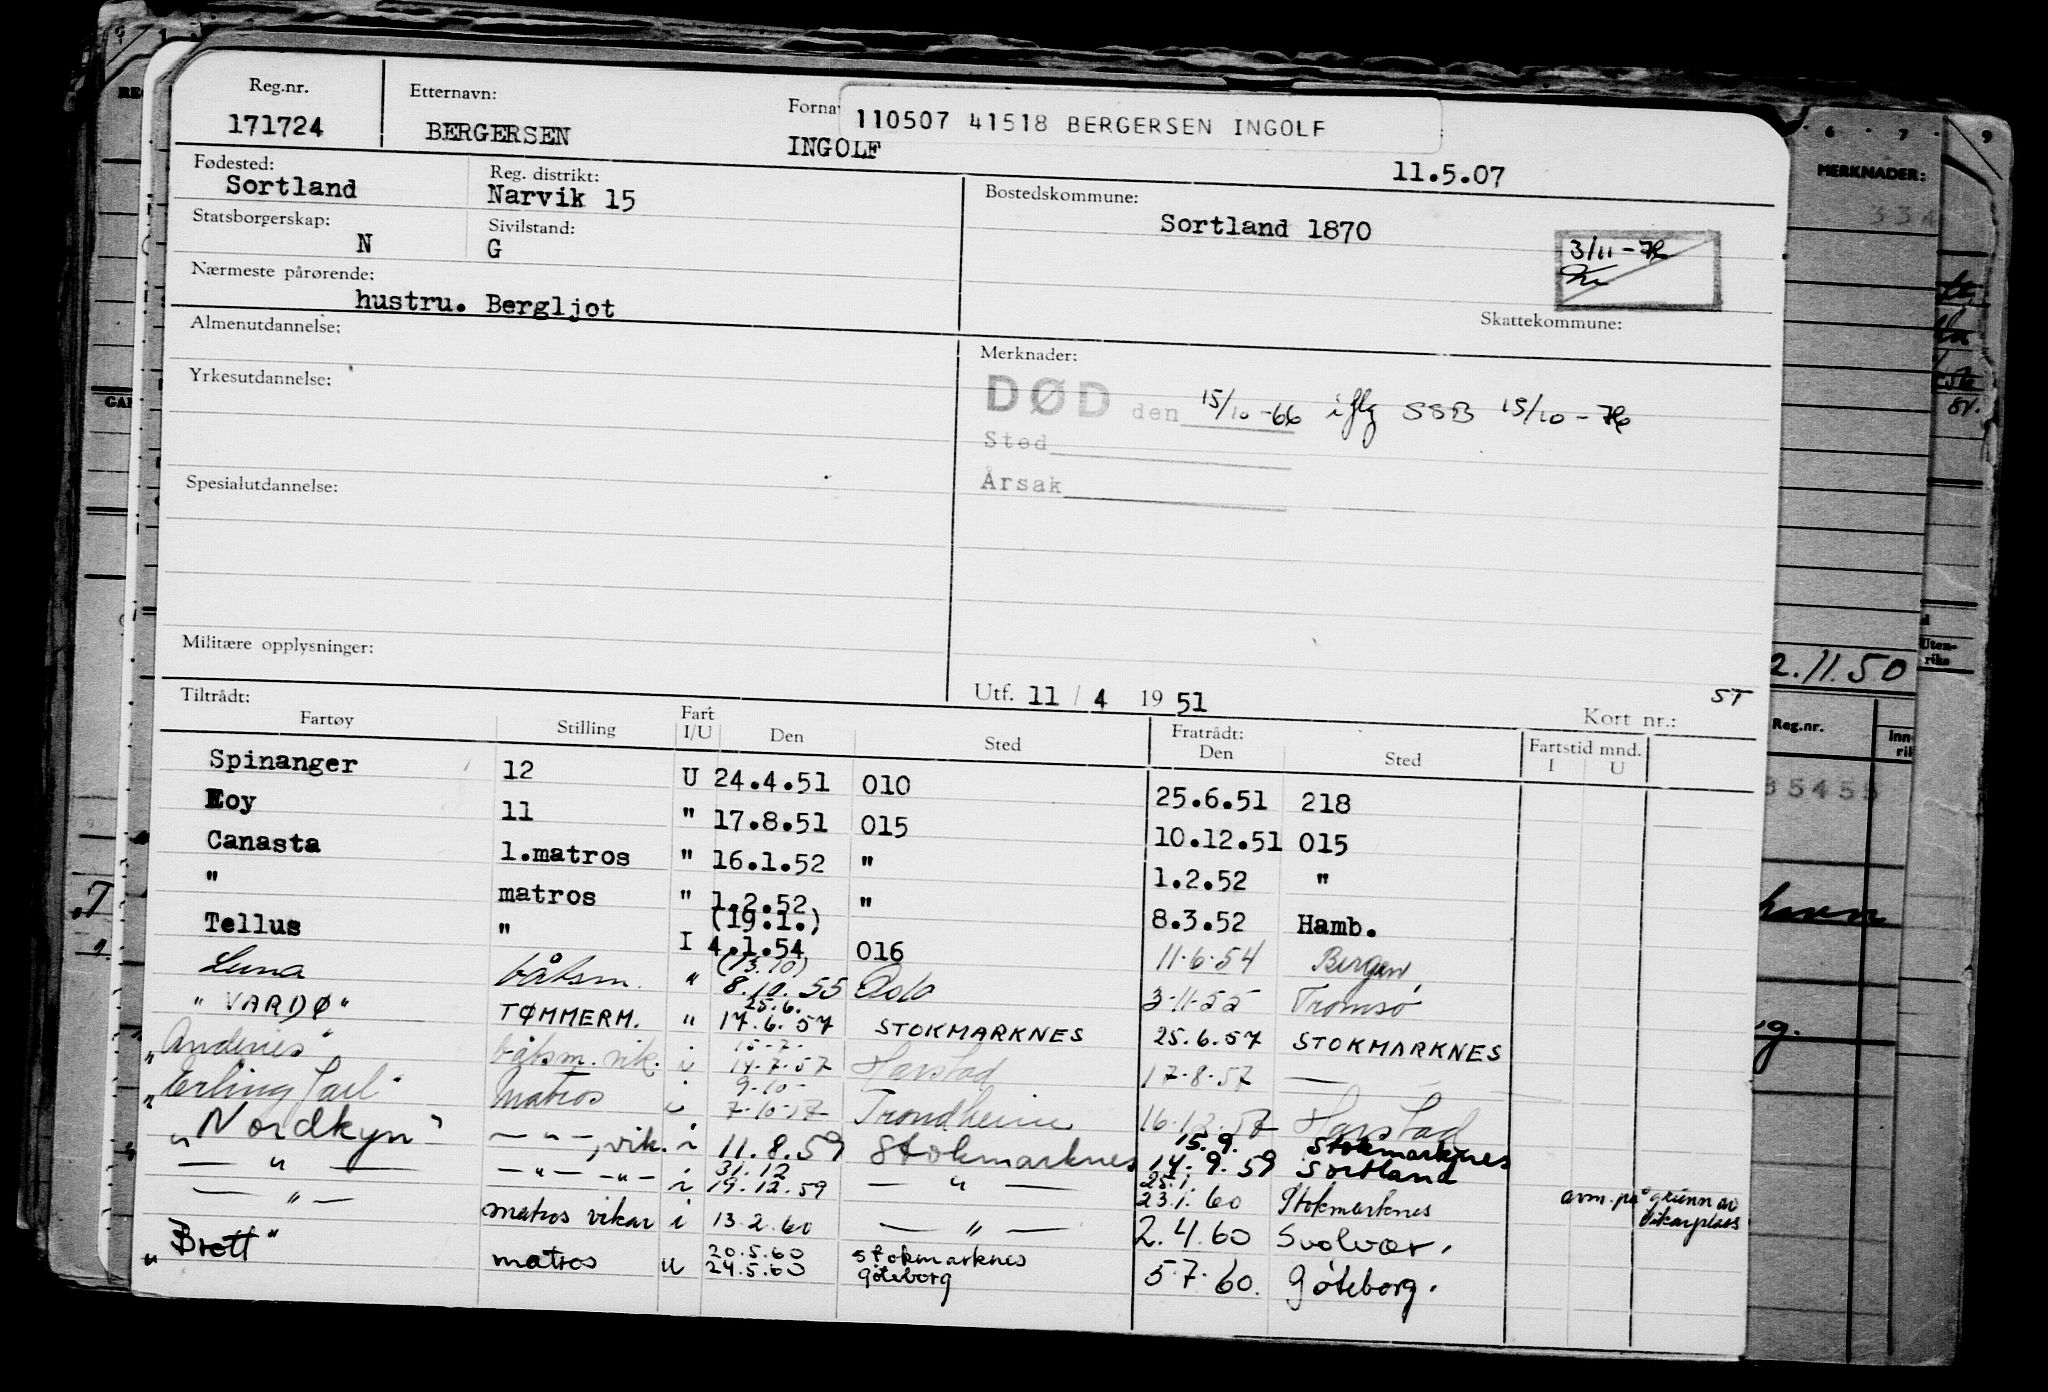 Reg.nr. Etternavn: Forna 110507 41518 BERGERSEN INGOLF
171724 BERGERSEN INGOLF 11.5.07
Fødested: Reg. distrikt: Bostedskommune:
Sortland Narvik 15 Sortland 1870
Statsborgerskap: Sivilstand:
N G
3/11-76
Nærmeste pårørende:
hustru. Bergljot
Skattekommune:
Almenutdannelse: Merknader:
DØD den 15/10-66 iflg SSB 15/10-76
Yrkesutdannelse:
Sted
Årsak
Spesialutdannelse:
Militære opplysninger:
Utf. 11 / 4 19 51 ST
Kort nr.:
Tiltrådt: Fratrådt: Fartstid mnd.
Fartøy Stilling Fart I/U Den Sted Den Sted I U
Spinanger 12 U 24.4.51 010 25.6.51 218
Eoy 11 " 17.8.51 015 10.12.51 015
Canasta 1.matros " 16.1.52 " 1.2.52 "
" matros " 1.2.52 " 8.3.52 Hamb.
(19.1.)
Tellus " I 4.1.54 016 11.6.54 Bergen
(13.10)
Luna båtsm. " 8.10.55 Oslo 3.11.55 Tromsø
25.6.
"VARDØ" TØMMERM. " 17.6.57 STOKMARKNES 25.6.57 STOKMARKNES
15-7-
"Andenes" båtsm. vik. i 14.7.57 Harstad 17.8.57 —
9-10-
"Erling Jarl" matros i 7-10-57 Trondheim 16.12.57 Harstad
15.9. Stokmarknes
"Nordkyn" — " —, vik. i 11.8.59 Stokmarknes 14.9.59 Sortland
31.12 25.1
— " — — " — — " — i 19.12.59 — " — 23.1.60 Stokmarknes avm. på grunn av vikarplass
— " — matros vikar i 13.2.60 — " — 2.4.60 Svolvær.
20.5.60 Stokmarknes
"Brott" matros u 24.5.60 Göteborg 5.7.60. Göteborg.
MERKNADER:
334
2.11.50
Uten-
riks
Reg.nr.
Inn-
35455
havn